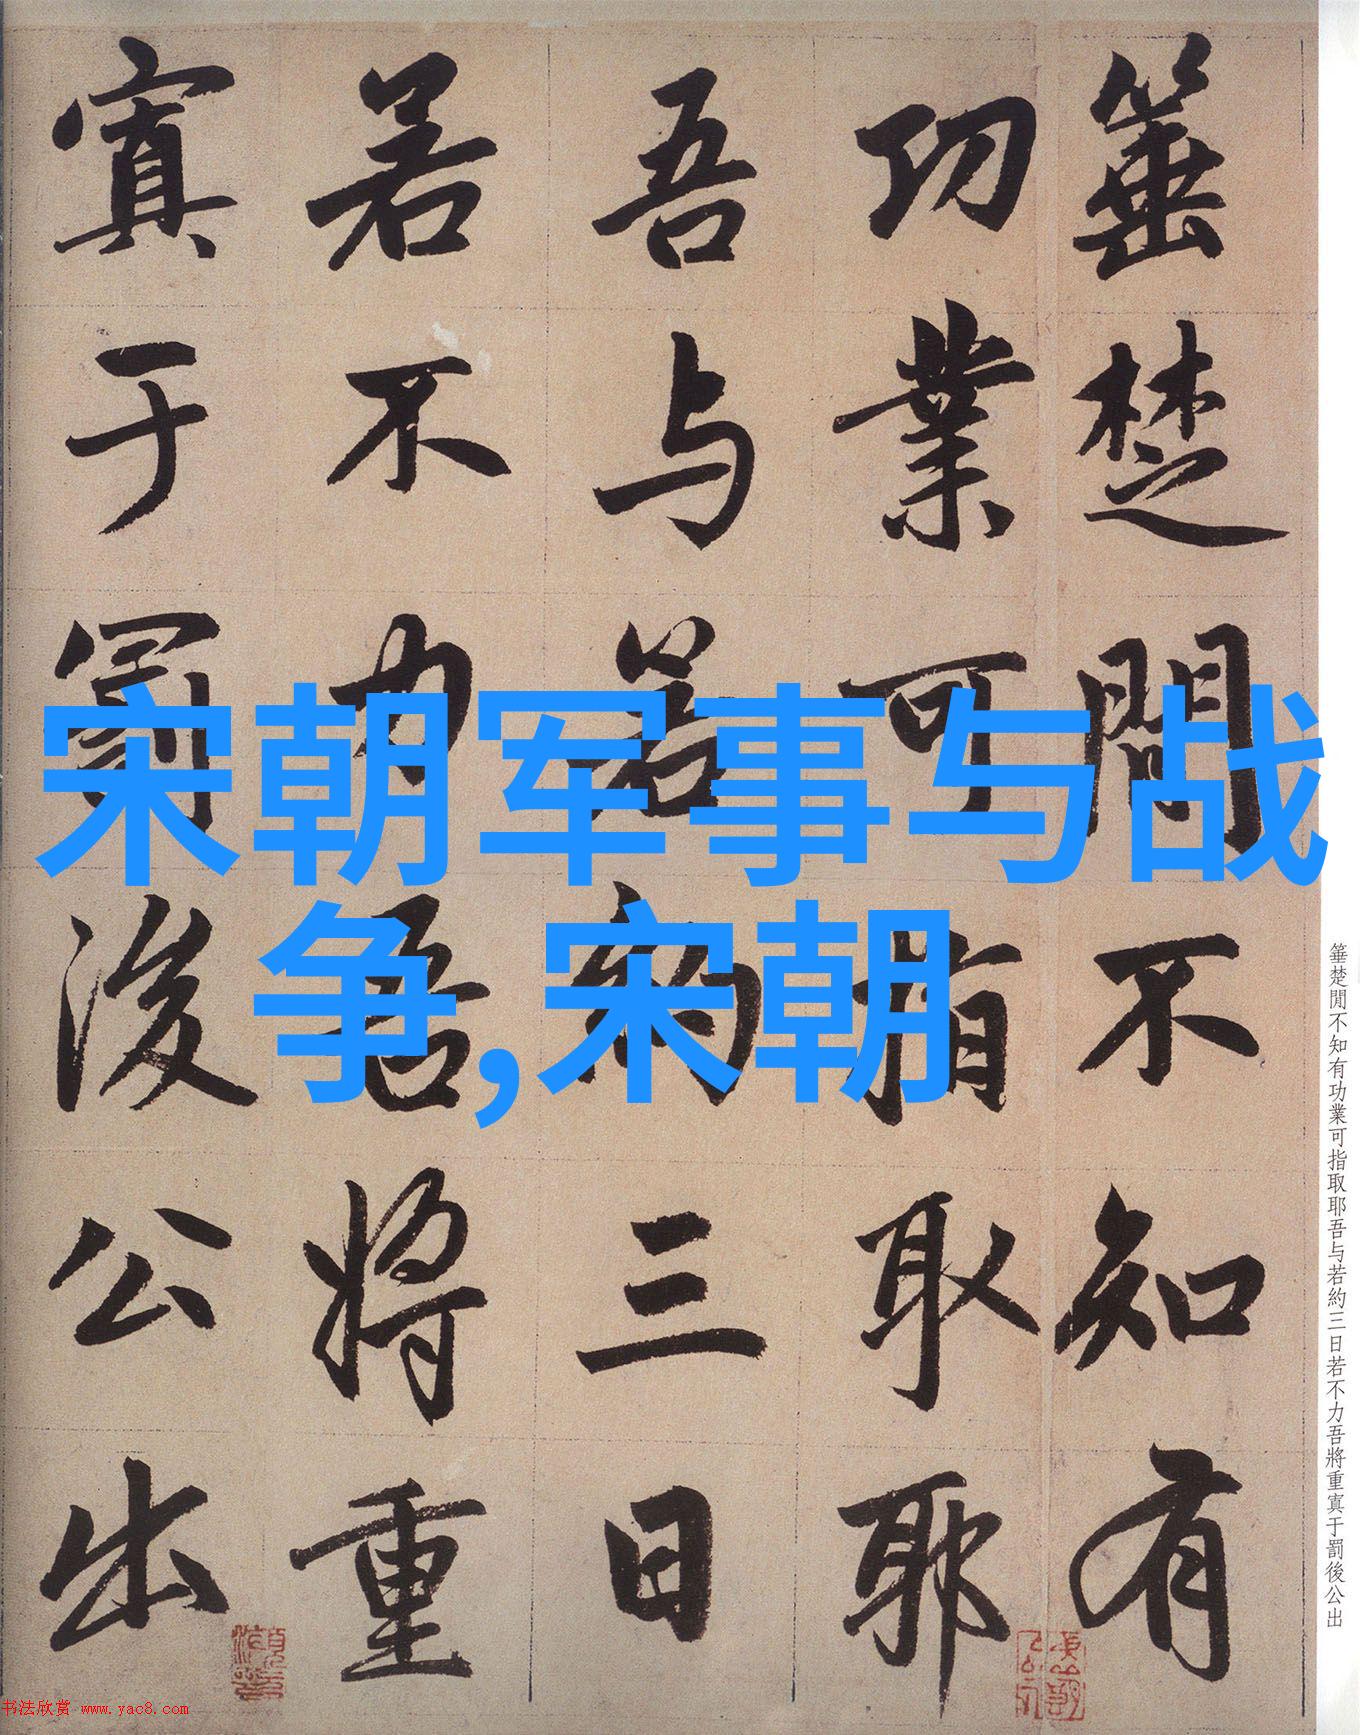 箠楚閒不知有
功業可指取耶
吾与若約三日
若不力吾將重
寘于罰後公出
宋朝军事与战
争,宋朝
箠楚閒不知有功業可指取耶吾与若約三日若不力吾將重寘于罰後公出
书法欣赏 www.yac8.com